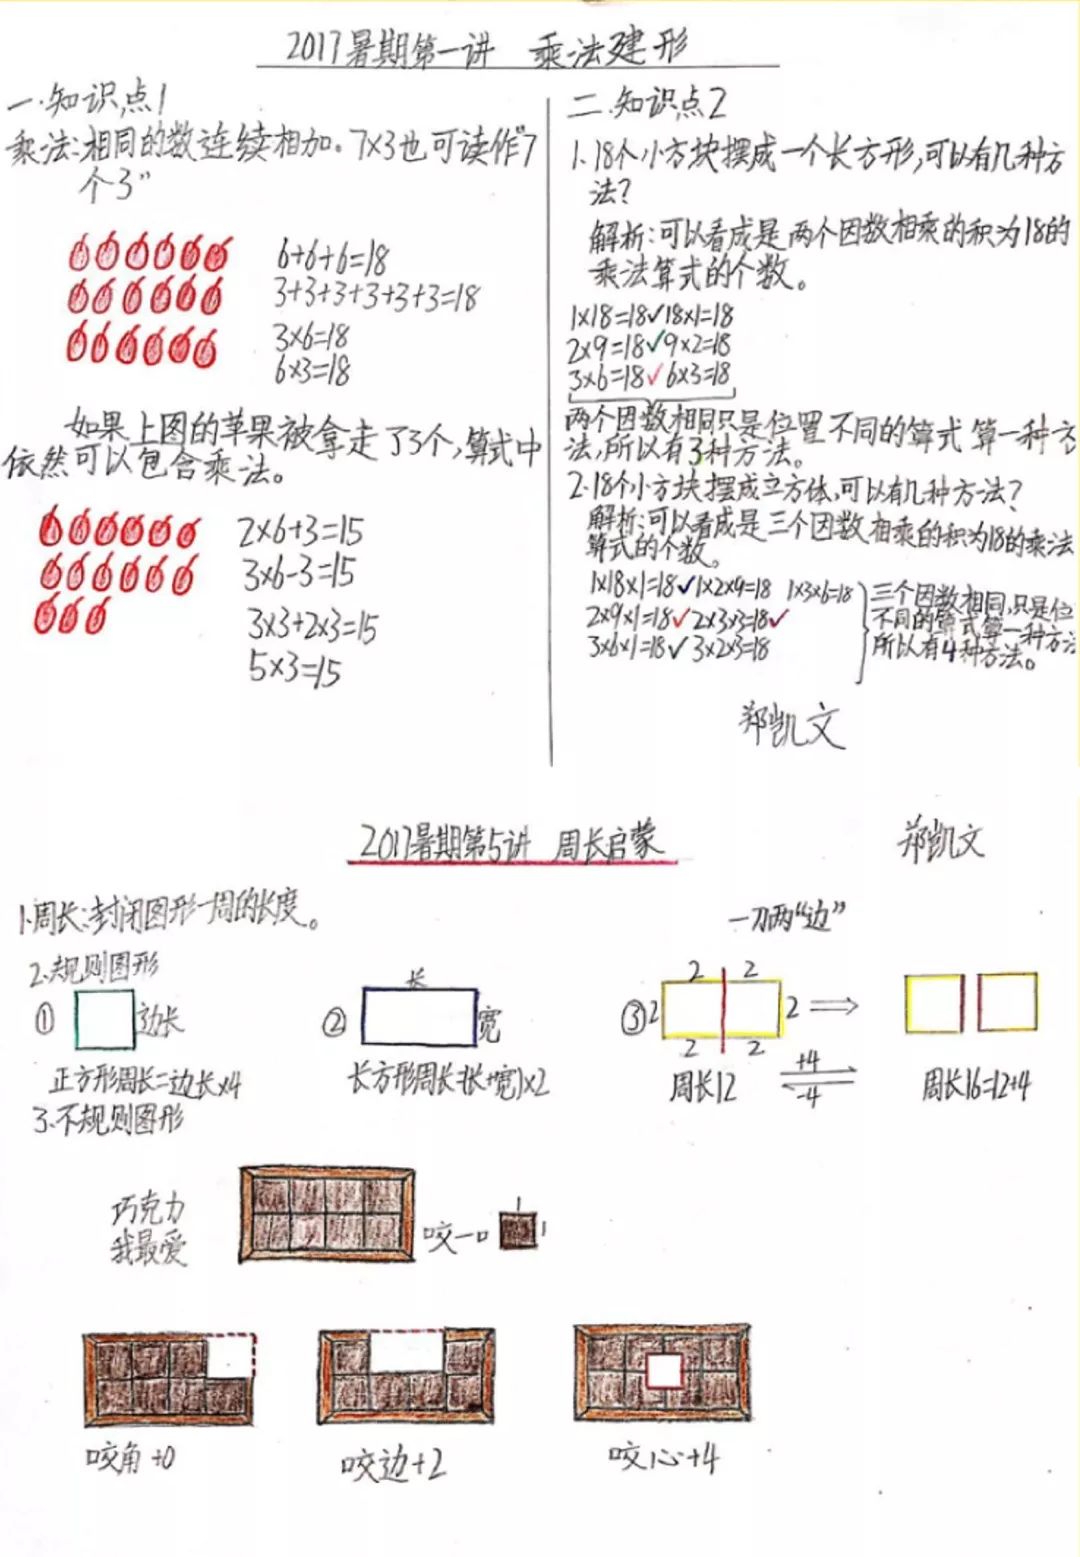 2017暑期第一讲 乘法建形
一.知识点1
乘法:相同的数连续相加。7×3也可读作"7
个3"
6+6+6=18
3+3+3+3+3+3=18
3×6=18
6×3=18
如果上图的苹果被拿走了3个,算式中
依然可以包含乘法。
2×6+3=15
3×6-3=15
3×3+2×3=15
5×3=15
二.知识点2
1.18个小方块摆成一个长方形,可以有几种方
法?
解析:可以看成是两个因数相乘的积为18的
乘法算式的个数。
1×18=18✓18×1=18
2×9=18✓9×2=18
3×6=18✓6×3=18
两个因数相同只是位置不同的算式算一种方
法,所以有3种方法。
2.18个小方块摆成立方体,可以有几种方法?
解析:可以看成是三个因数相乘的积为18的乘法
算式的个数。
1×18×1=18✓1×2×9=18 1×3×6=18
2×9×1=18✓2×3×3=18✓
3×6×1=18✓3×2×3=18
三个因数相同,只是位
不同的算式算一种方法
所以有4种方法。
郑凯文
2017暑期第5讲 周长启蒙
郑凯文
1.周长:封闭图形一周的长度。
一刀两"边"
2.规则图形
① 边长
正方形周长=边长×4
② 长
宽
长方形周长=(长+宽)×2
③ 2 2
2 2
2 2
周长12
+4
-4
周长16=12+4
3.不规则图形
巧克力
我最爱
咬一口
1
1
咬角+0
咬边+2
咬心+4